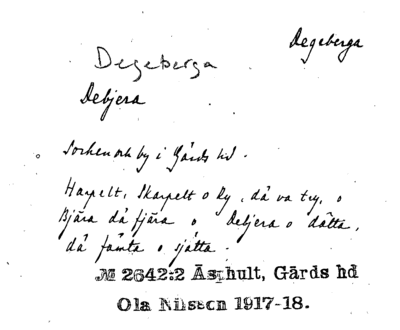 Degeberga
Degeberga
Debjera
Socken och by i Gärds hd.
Harpelt, Skarpelt o Ry, då va try, o
Bjära då fjära o Debjera o dåtta,
då fämta o sjätta.
№ 2642:2 Åsphult, Gärds hd
Ola Nilsson 1917-18.